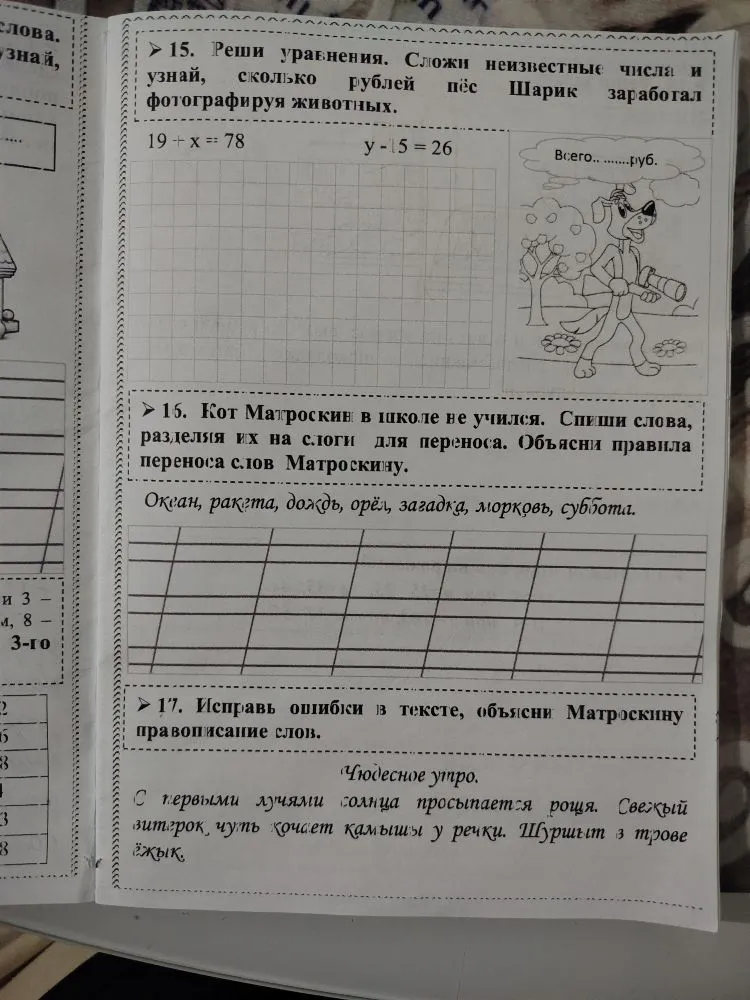 слова.
узнай,
....
и 3 –
м, 8 –
3-го
2
6
8
4
3
8
➤ 15. Реши уравнения. Сложи неизвестные числа и
узнай, сколько рублей пёс Шарик заработал
фотографируя животных.
19 + x = 78 y -15 = 26
Всего.. .......руб.
➤ 16. Кот Матроскин в школе не учился. Спиши слова,
разделяя их на слоги для переноса. Объясни правила
переноса слов Матроскину.
Океан, ракета, дождь, орёл, загадка, морковь, суббота.
➤ 17. Исправь ошибки в тексте, объясни Матроскину
правописание слов.
Чюдесное утро.
С первыми лучями солнца просыпается рощя. Свежый
витерок чуть кочает камышы у речки. Шуршыт в трове
ёжык.